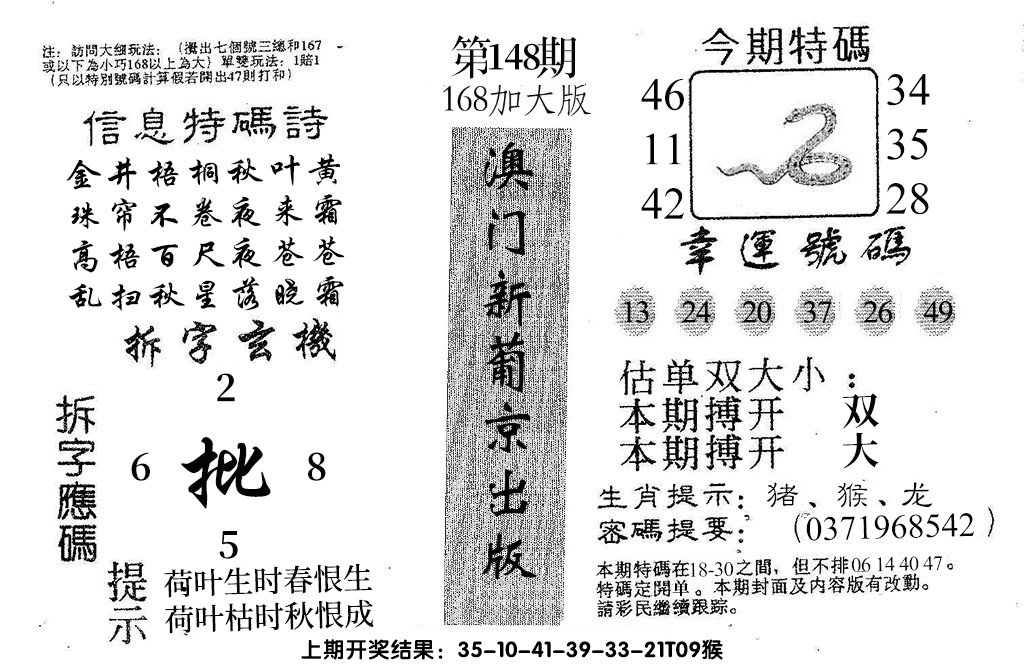 注：訪問大细玩法：（攪出七個號三總和167
或以下為小巧168以上為大）單雙玩法：1賠1
（只以特別號碼計算假若開出47則打和）
信息特碼詩
金井梧桐秋叶黄
珠帘不卷夜来霜
高梧百尺夜苍苍
乱扫秋星落晓霜
拆字玄機
2
拆字應碼
6 批 8
5
提示
荷叶生时春恨生
荷叶枯时秋恨成
第148期
168加大版
澳门新葡京出版
今期特碼
46 34
11 35
42 28
幸運號碼
13 24 20 37 26 49
估单双大小：
本期搏开 双
本期搏开 大
生肖提示：猪、猴、龙
密碼提要：（0371968542）
本期特碼在18-30之間，但不排06 14 40 47。
特碼定開单。本期封面及内容版有改動。
請彩民繼續跟踪。
上期开奖结果：35-10-41-39-33-21T09猴